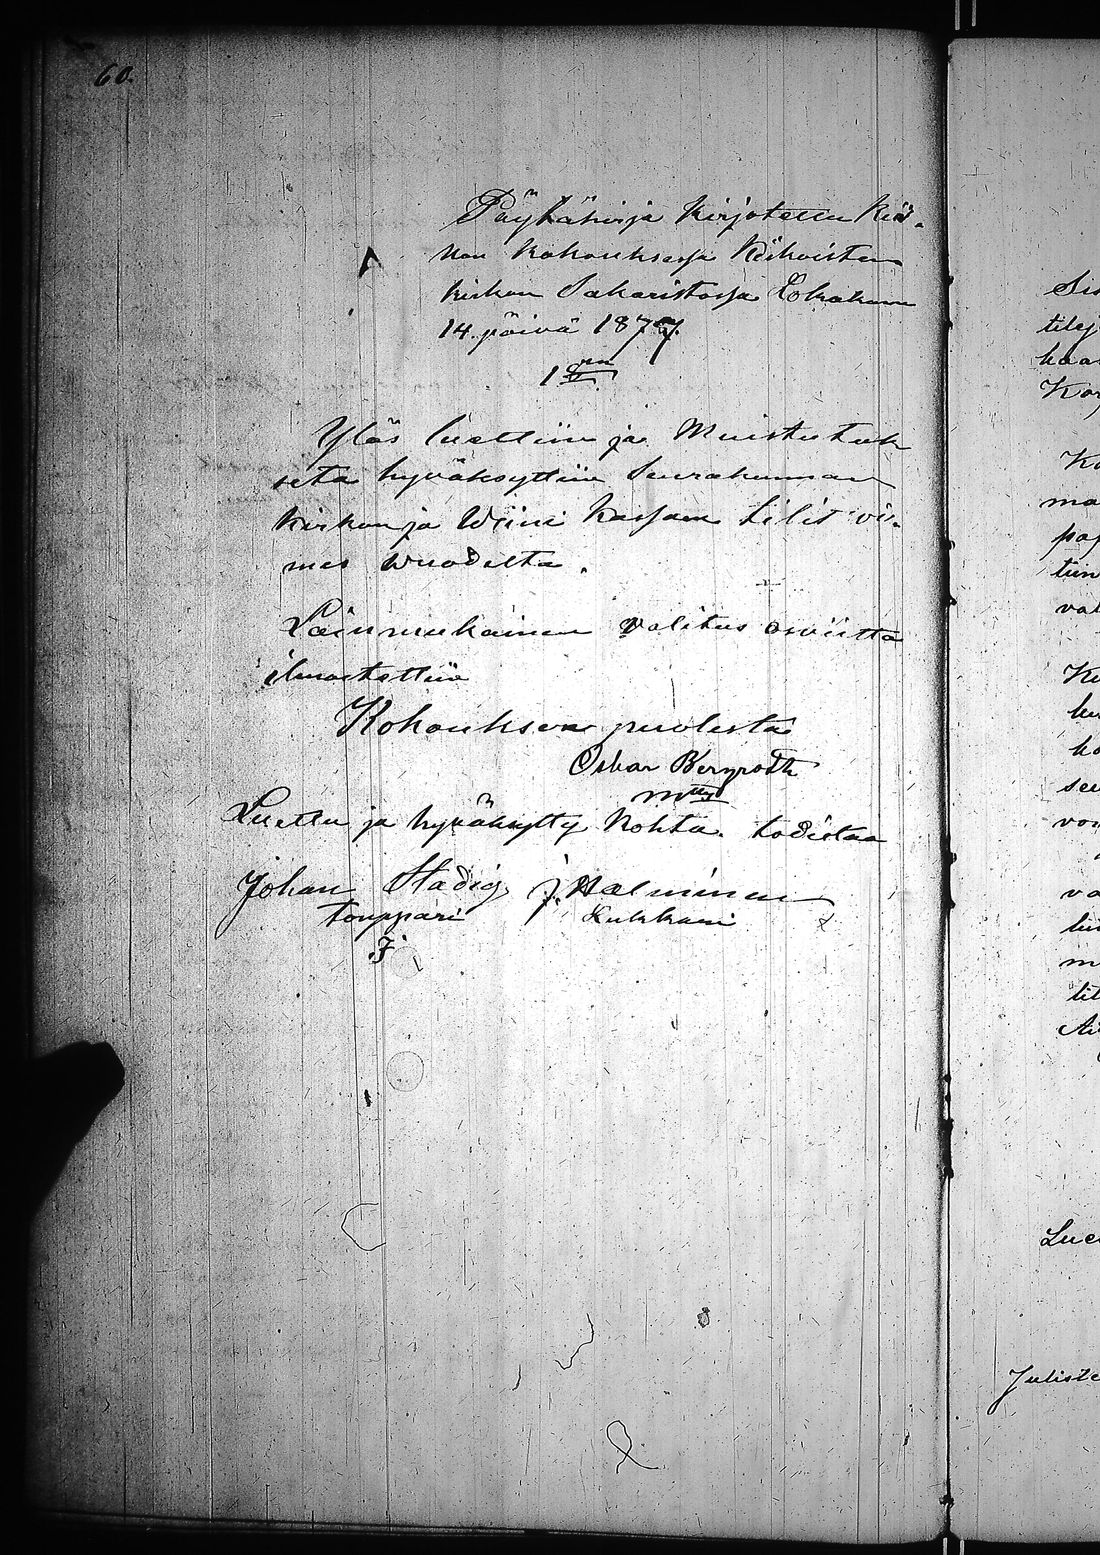 60.
Pöytäkirja kirjotettu Kir-
kon kokouksessa Kiikoisten
kirkon Sakaristossa Lokakuun
14. päivä 1877.
1 §
Ylös luettiin ja Muistutuk
seta hyväksyttiin Seurakunnan
kirkon ja Wiini kassan tilit vii-
mes wuodelta.
Lainmukainen valitus osviitta
ilmoitettiin
Kokouksen puolesta
Oskar Bergroth
Luettu ja hyväksytty kohta. todistaa
Johan Stadig J.
Touppari Lukkari
Sis
tilej
haa
Kor
ma
tiin
val
see
va
lii
til
Luet
Juliste